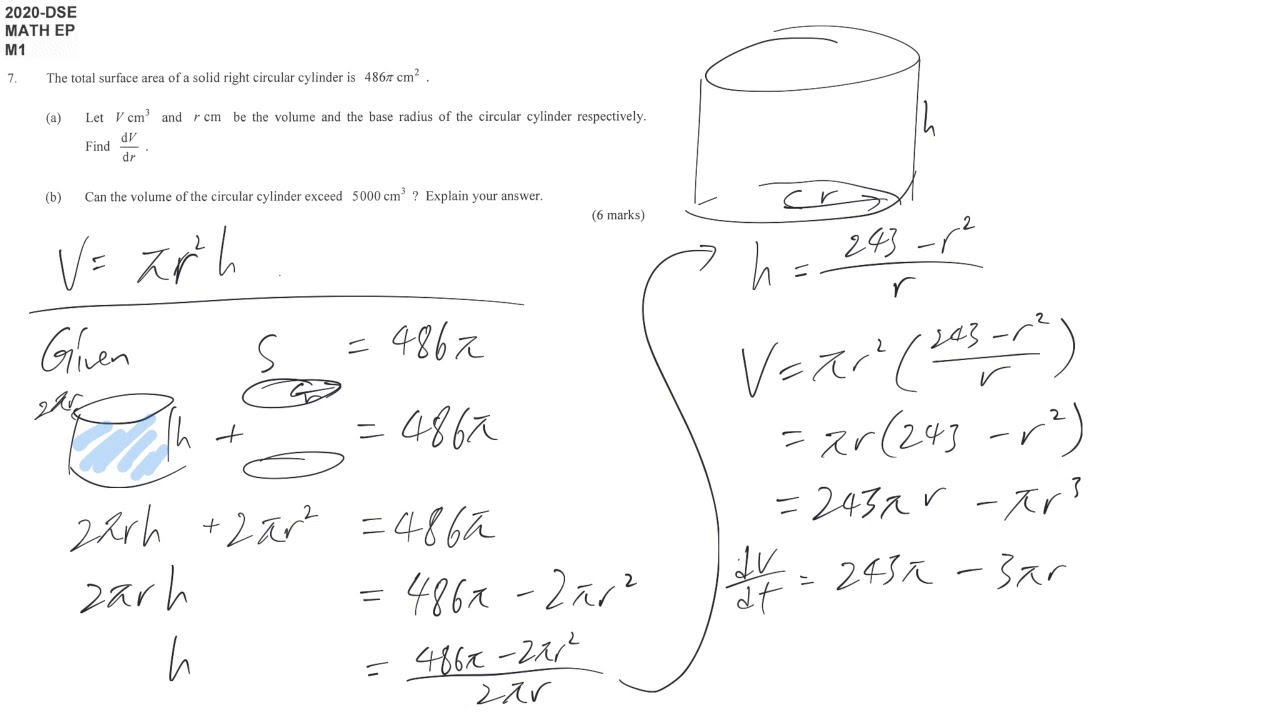 2020-DSE
MATH EP
M1
7. The total surface area of a solid right circular cylinder is 486π cm² .
(a) Let V cm³ and r cm be the volume and the base radius of the circular cylinder respectively.
Find dV/dr .
(b) Can the volume of the circular cylinder exceed 5000 cm³ ? Explain your answer.
(6 marks)
V = πr²h
Given S = 486π
2πr h + r = 486π
2πrh + 2πr² = 486π
2πrh = 486π − 2πr²
h = (486π − 2πr²)/(2πr)
h
r
h = (243 − r²)/r
V = πr² ((243 − r²)/r)
= πr(243 − r²)
= 243πr − πr³
dV/dt = 243π − 3πr